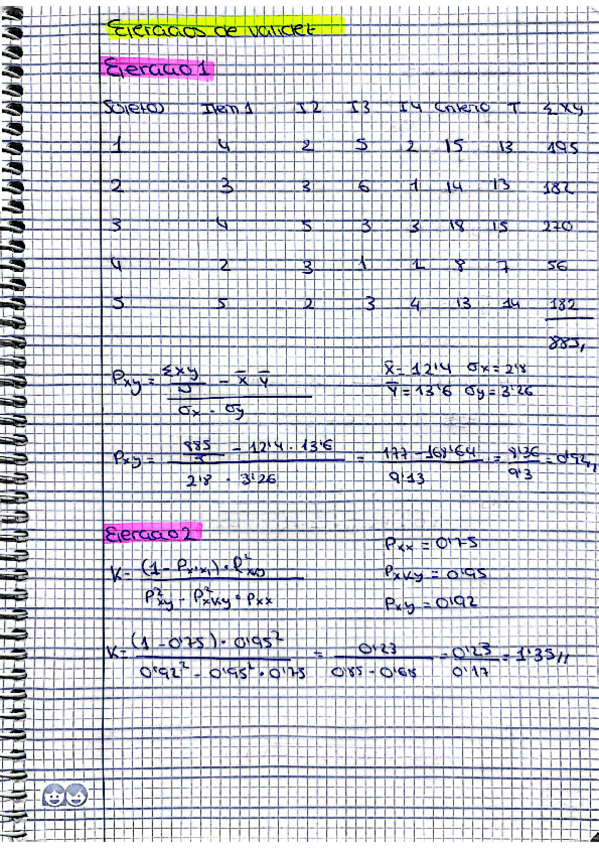 Ejercicios de validez
Ejercicio 1
Sujetos Item 1 I2 I3 I4 Criterio T Σxy
1 4 2 5 2 15 13 195
2 3 3 6 1 14 13 182
3 4 5 3 3 18 15 270
4 2 3 1 1 8 7 56
5 5 2 3 4 13 14 182
885,,
Pxy = (Σxy/5 - x̄ · ȳ) / (σx · σy)
x̄ = 12'4 σx = 2'8
ȳ = 13'6 σy = 3'26
Pxy = (885/5 - 12'4 · 13'6) / (2'8 · 3'26) = (177 - 168'64) / 9'13 = 8'36 / 9'3 = 0'92,,
Ejercicio 2
Pxx = 0'75
PxKy = 0'95
Pxy = 0'92
K = (1 - Px'x') · P²xy / (P²xy - P²xKy · Pxx)
K = (1 - 0'75) · 0'95² / (0'92² - 0'95² · 0'75) = 0'23 / (0'85 - 0'68) = 0'23 / 0'17 = 1'35//